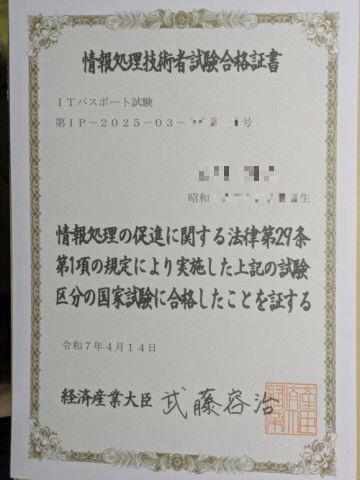 情報処理技術者試験合格証書
ITパスポート試験
第IP-2025-03- 号
昭和 生
情報処理の促進に関する法律第29条
第1項の規定により実施した上記の試験
区分の国家試験に合格したことを証する
令和7年4月14日
経済産業大臣 武藤容治